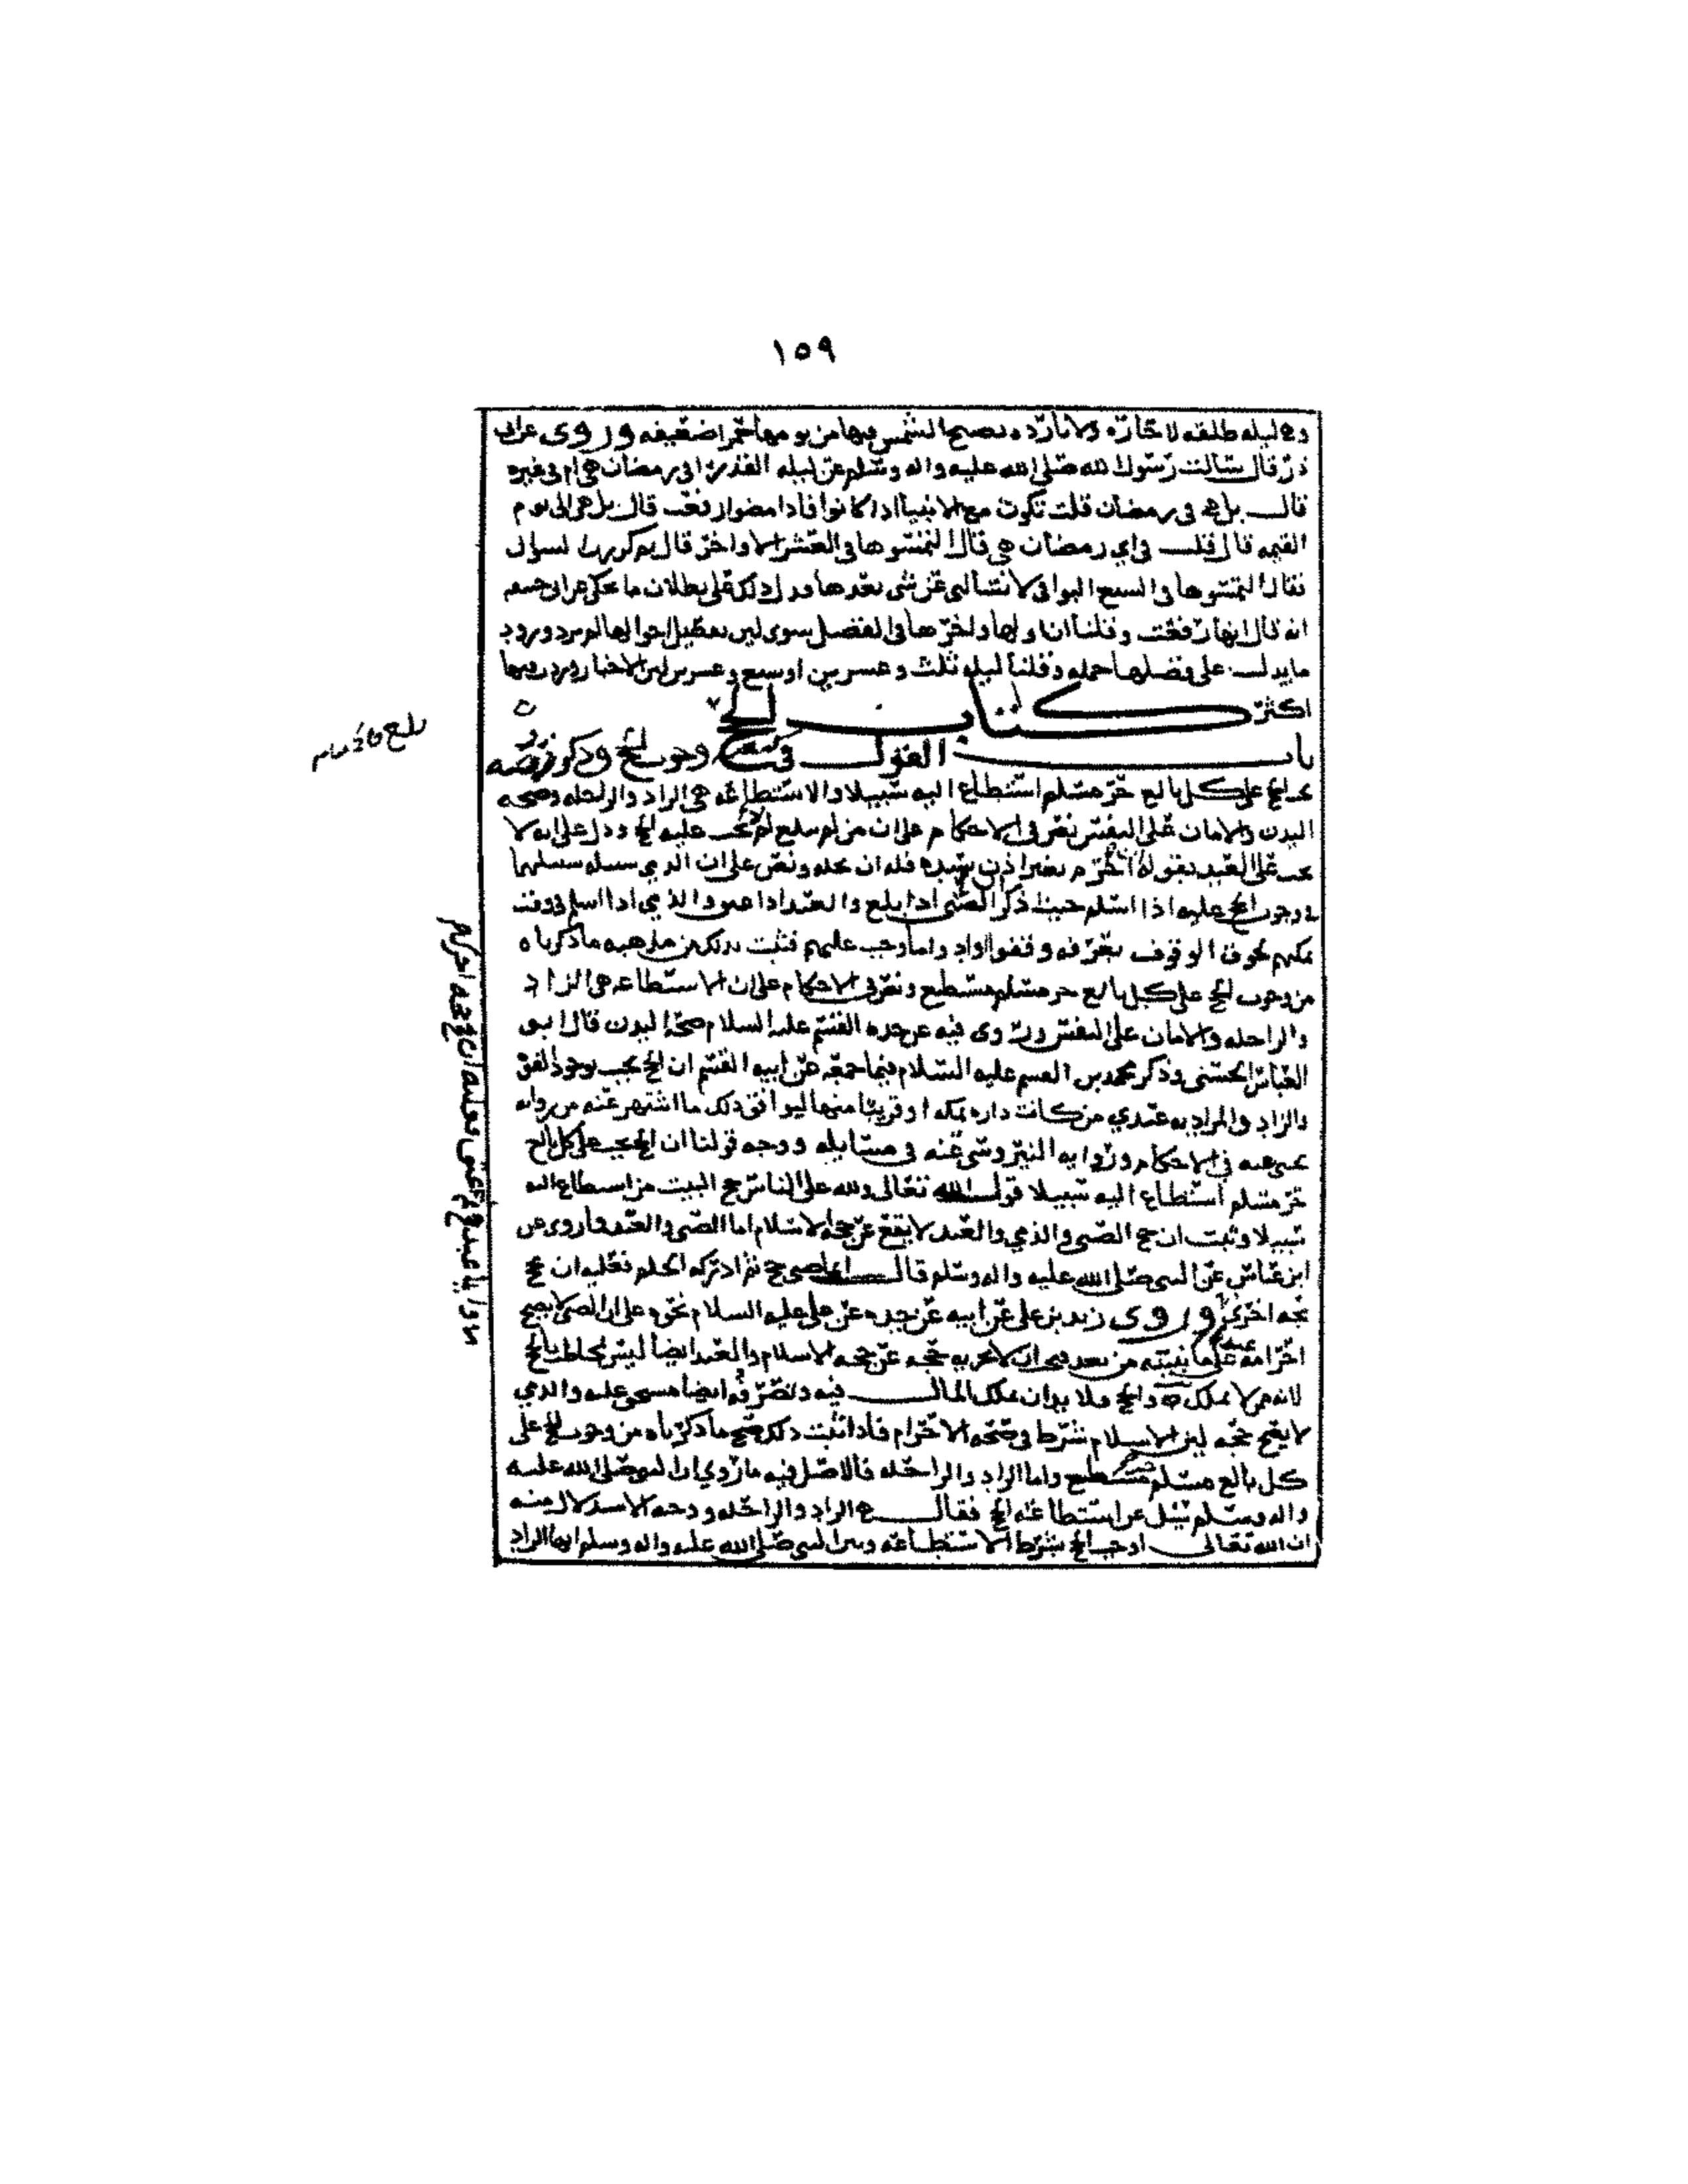 ١٥٩
وهي ليله طلقه لا حاره ولا بارده تصبح الشمس فيها من يومها حمرا ضعيفه وروى عن ابي
ذر قال سالت رسول الله صلى الله عليه واله وسلم عن ليله القدر افي رمضان هي ام في غيره
قال بل هي في رمضان قلت تكون مع الانبيا اذا كانوا فاذا مضوا رفعت قال بل هي الى يوم
القيمه قال قلت في اي رمضان هي قال التمسوها في العشر الاواخر قال
فقال التمسوها في السبع البواقي لا تسالني عن شي بعدها ودل ذلك على بطلان ما حكي عن ابي حنيفه
انه قال انها رفعت وقلنا ان اولها واخرها في الفضل سوى لان تفضيل احوالها لم يرد وورود
ما يدل على فضلها جمله وقلنا ليله ثلث وعسرين او سبع وعسرين لان الاخبار وردت فيها
اكثر كتاب الحج
باب القول في وجوب الحج وذكر فرضه
يجب الحج على كل بالغ حر مسلم استطاع اليه سبيلا والاستطاعه هي الزاد والراحله وصحه
البدن والامان على النفس نص في الاحكام على ان من لم يبلغ لم يجب عليه الحج ودل على انه لا
يجب على العبد بقوله اذا احرم بغير اذن سيده فله ان يحله ونص على ان الذمي سبيله سبيلهما
في وجوب الحج عليه اذا اسلم حيث ذكر الصبي اذا بلغ والعبد اذا عتق والذمي اذا اسلم في وقت
يمكنهم لحوق الوقوف بعرفه وقفوا وادوا ما وجب عليهم فثبت بذلك من مذهبه ما ذكرناه
من وجوب الحج على كل بالغ حر مسلم مستطيع ونص في الاحكام على ان الاستطاعه هي الزاد
والراحله والامان على النفس وروى فيه عن جده القسم عليه السلام صحه البدن قال ابو
العباس الحسني وذكر محمد بن القسم عليه السلام فيما جمعه عن ابيه القسم ان الحج يجب بوجود
والزاد والمراد به عندي من كانت داره بمكه او قريبا منها ليوافق ذلك ما اشتهر عنه من روايه
يحيى عنه في الاحكام وروايه النيروسي عنه في مسايله ووجه قولنا ان الحج يجب على كل بالغ
حر مسلم استطاع اليه سبيلا قول الله تعالى ولله على الناس حج البيت من استطاع اليه
سبيلا وثبت ان حج الصبي والذمي والعبد لا يقع عن حجه الاسلام اما الصبي والعبد فلما روي عن
ابن عباس عن النبي صلى الله عليه واله وسلم قال ايما صبي حج ثم ادركه الحلم فعليه ان يحج
حجه اخرى وروى زيد بن علي عن ابيه عن جده عن علي عليه السلام نحوه على ان الصبي لا يصح
احرامه من بعد فيجب ان لا يجزيه حجه عن حجه الاسلام والعبد ايضا ليس بمخاطب بالحج
لانه ممن لا يملك والحج فلا بد ان يملك المال فيه وتصرفه ايضا مستحق عليه والذمي
لا يصح حجه لان الاسلام شرط في صحه الاحرام فاذا ثبت ذلك صح ما ذكرناه من وجوب الحج على
كل بالغ مسلم حر مستطيع واما الزاد والراحله فالاصل فيه ما روي ان النبي صلى الله عليه
واله وسلم سئل عن استطاعه الحج فقال هي الزاد والراحله ووجه الاستدلال منه
ان الله تعالى اوجب الحج بشرط الاستطاعه وبين النبي صلى الله عليه واله وسلم انها الزاد